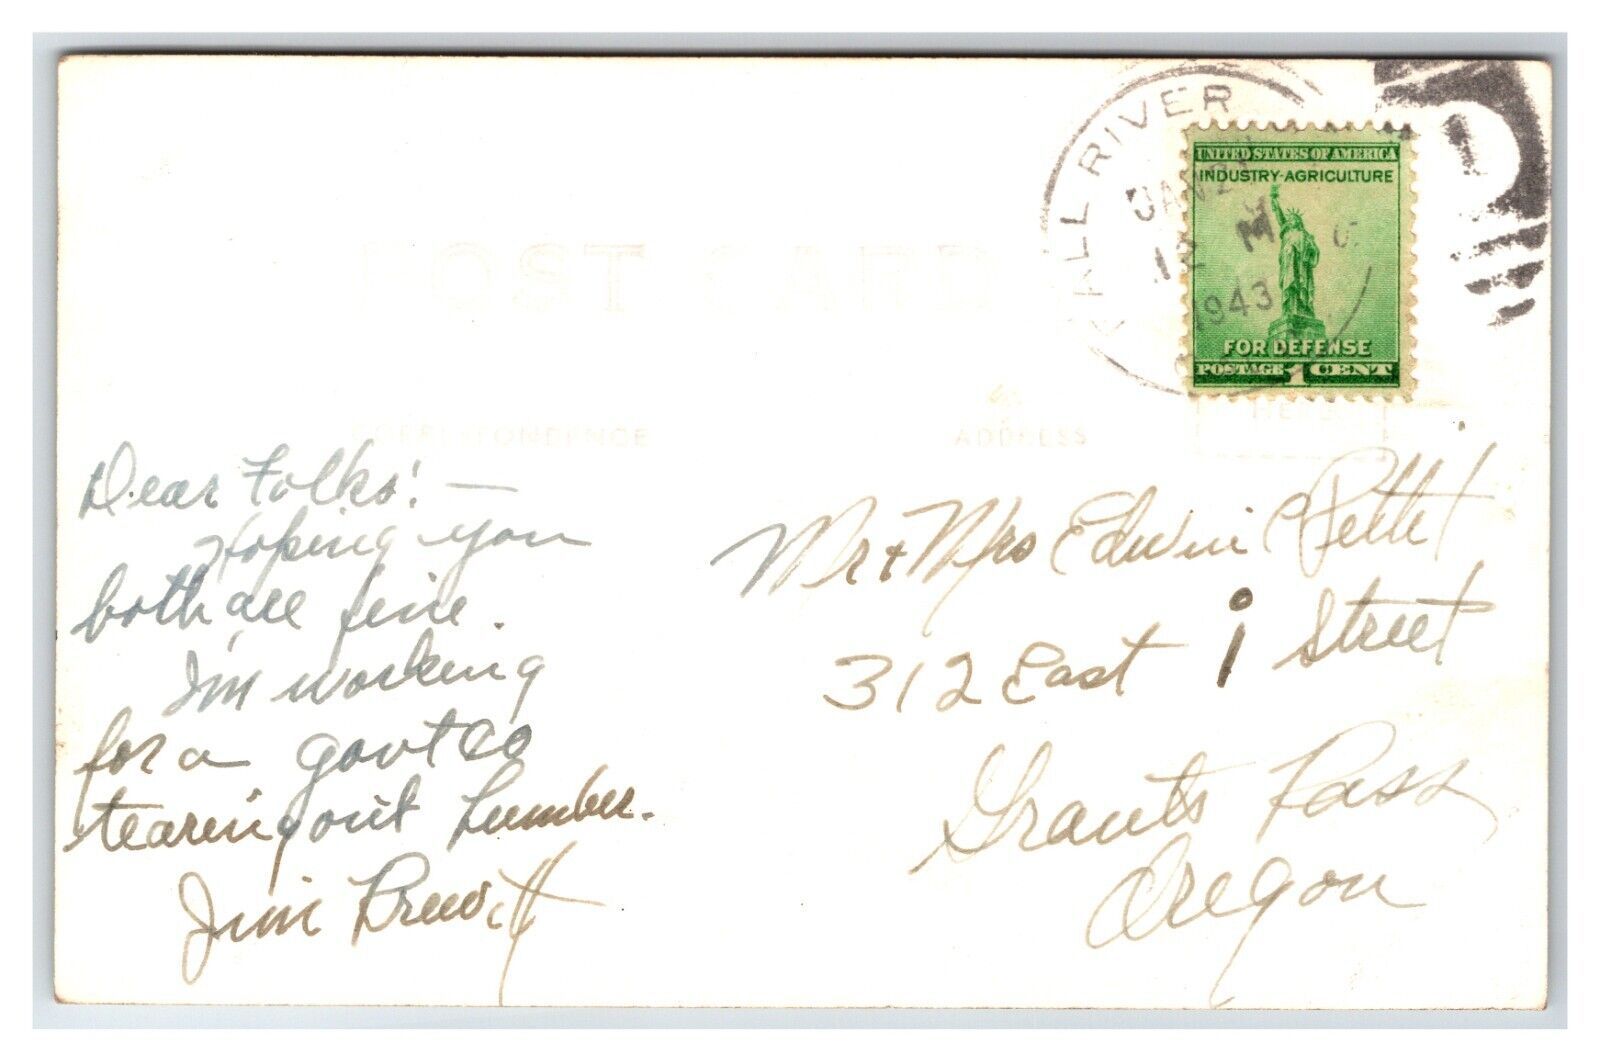 FALL RIVER
JAN 2
12 M
1943
UNITED STATES OF AMERICA
INDUSTRY-AGRICULTURE
FOR DEFENSE
POSTAGE 1 CENT
POST CARD
CORRESPONDENCE
ADDRESS
HERE
Dear Folks! —
Hoping you
both are fine.
I'm working
for a govt co
tearing out Lumber.
Jim Prewitt
Mr & Mrs Edwin Pettit
312 East i Street
Grants Pass
Oregon